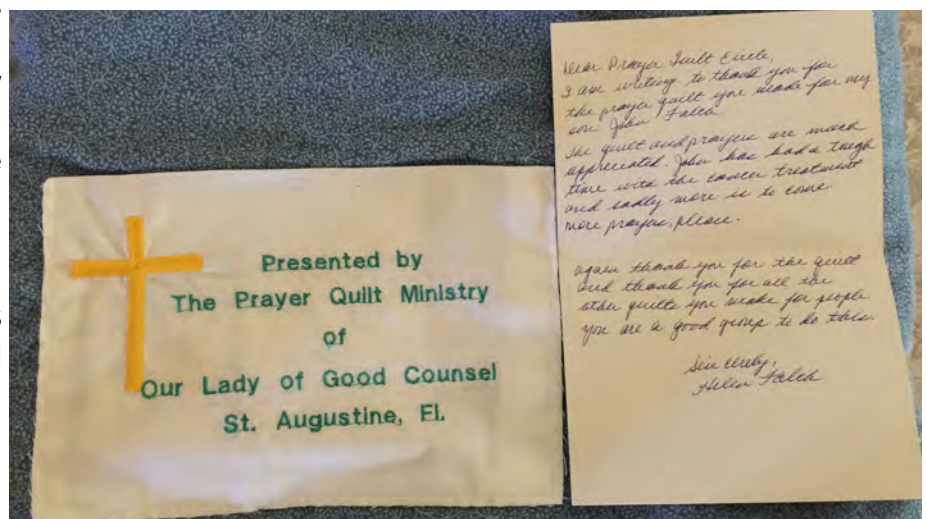 Presented by
The Prayer Quilt Ministry
of
Our Lady of Good Counsel
St. Augustine, Fl.
Dear Prayer Quilt Circle,
I am writing to thank you for
the prayer quilt you made for my
son John
The quilt and prayers are much
appreciated. John has had a tough
time with the cancer treatment
and sadly more is to come
more prayers, please.
again thank you for the quilt
and thank you for all the
other quilts you make for people
you are a good group to do this.
Sincerely,
Helen